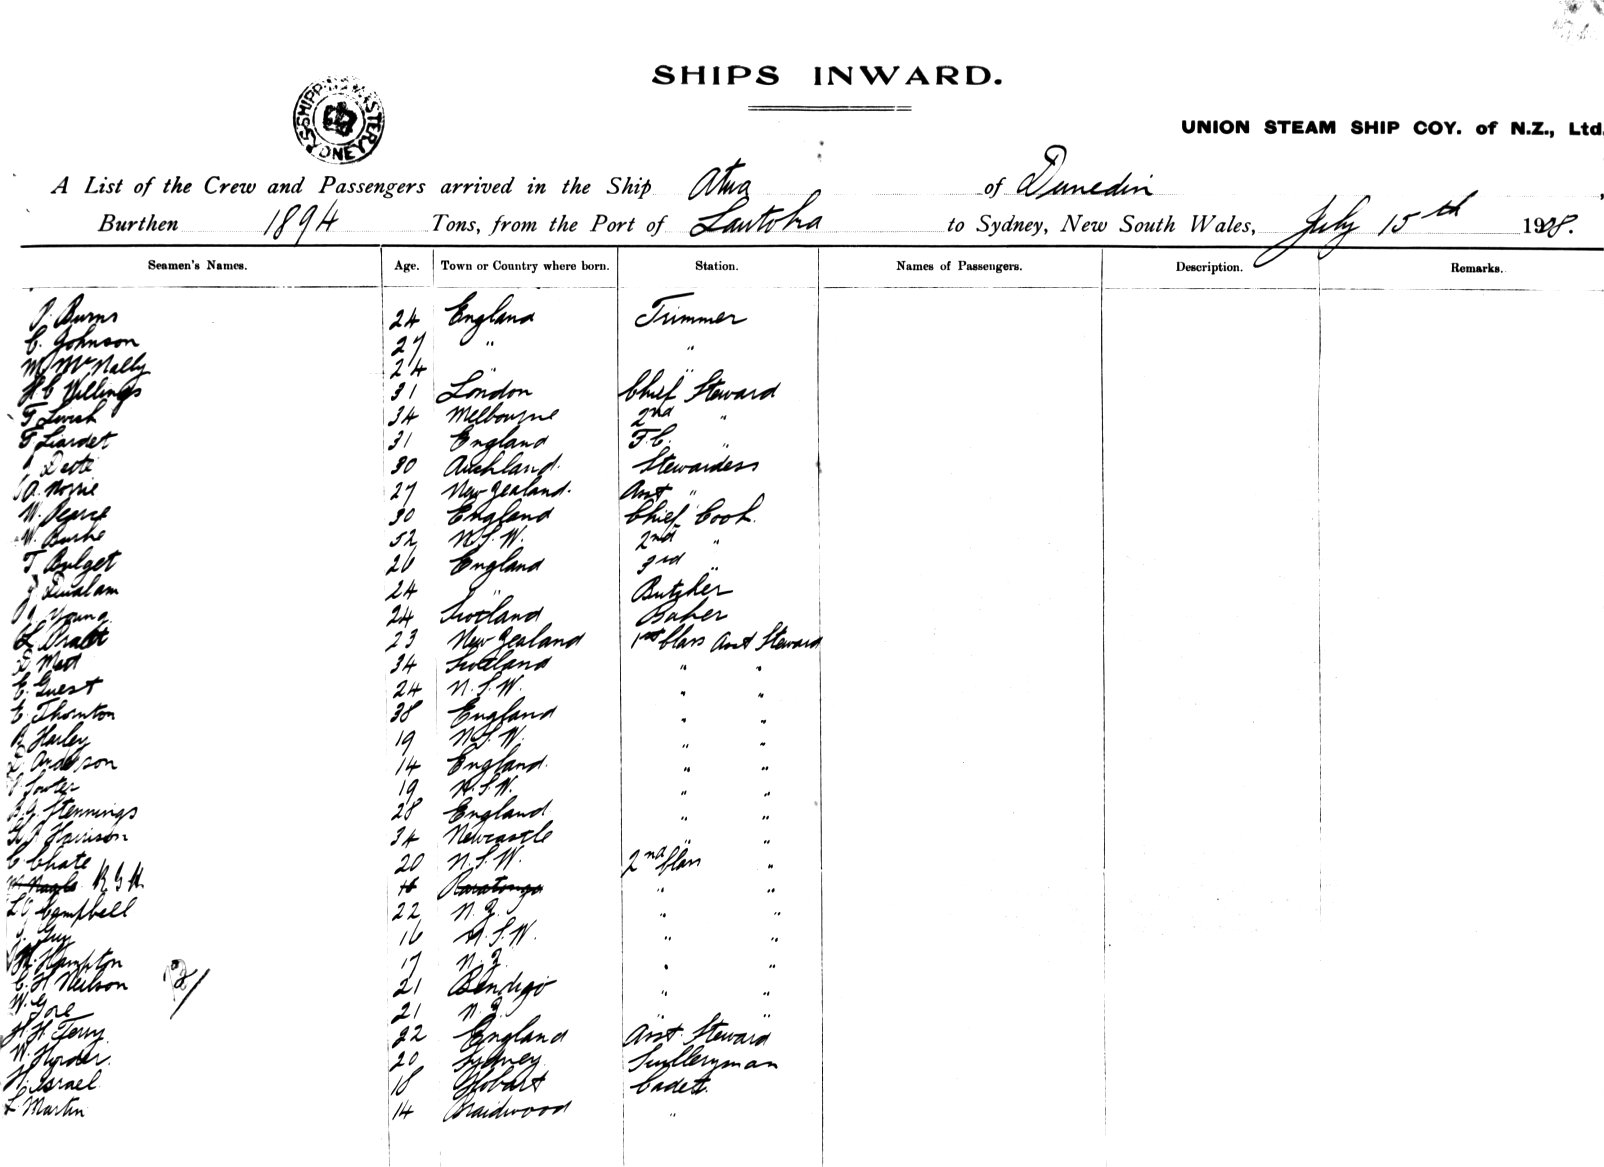 SHIPS INWARD.
SHIPPING MASTER SYDNEY
UNION STEAM SHIP COY. of N.Z., Ltd.
A List of the Crew and Passengers arrived in the Ship Atua of Dunedin,
Burthen 1894 Tons, from the Port of Lautoka to Sydney, New South Wales, July 15th 1908.
Seamen's Names. Age. Town or Country where born. Station. Names of Passengers. Description. Remarks.
Burns 24 England Trimmer
C. Johnson 27 " "
M McNally 24 " "
H C Villings 31 London Chief Steward
F 34 Melbourne 2nd "
F Liardet 31 England F.C. "
30 Auckland. Stewardess
A. Norrie 27 New Zealand. Asst "
W. Pearce 30 England Chief Cook.
W. Burke 52 N.S.W. 2nd "
T Bulget 26 England 3rd "
24 " Butcher
Young 24 Scotland Baker
L Pratt 23 New Zealand 1st Class Asst Steward
34 Scotland " "
E. Guest 24 N.S.W. " "
E Thornton 38 England " "
Harley 19 N.S.W. " "
Anderson 14 England. " "
19 N.S.W. " "
Stennings 28 England " "
Harrison 34 Newcastle " "
C Chate 20 N.S.W. 2nd Class "
W Nagle 16 Raratonga " "
Campbell 22 N.Z. " "
Guy 16 N.S.W. " "
Hampton 17 N.Z. " "
C. H Neilson 21 Bendigo " "
W. Gore 21 N.Z. " "
H. H. Terry 22 England Asst Steward
W. Horder. 20 Sydney Sculleryman
H. Israel 18 Hobart Cadet.
L Martin 14 Braidwood "